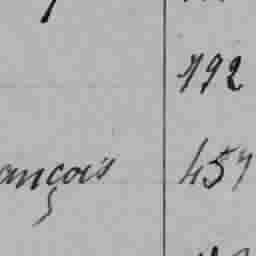 192
ançois 457